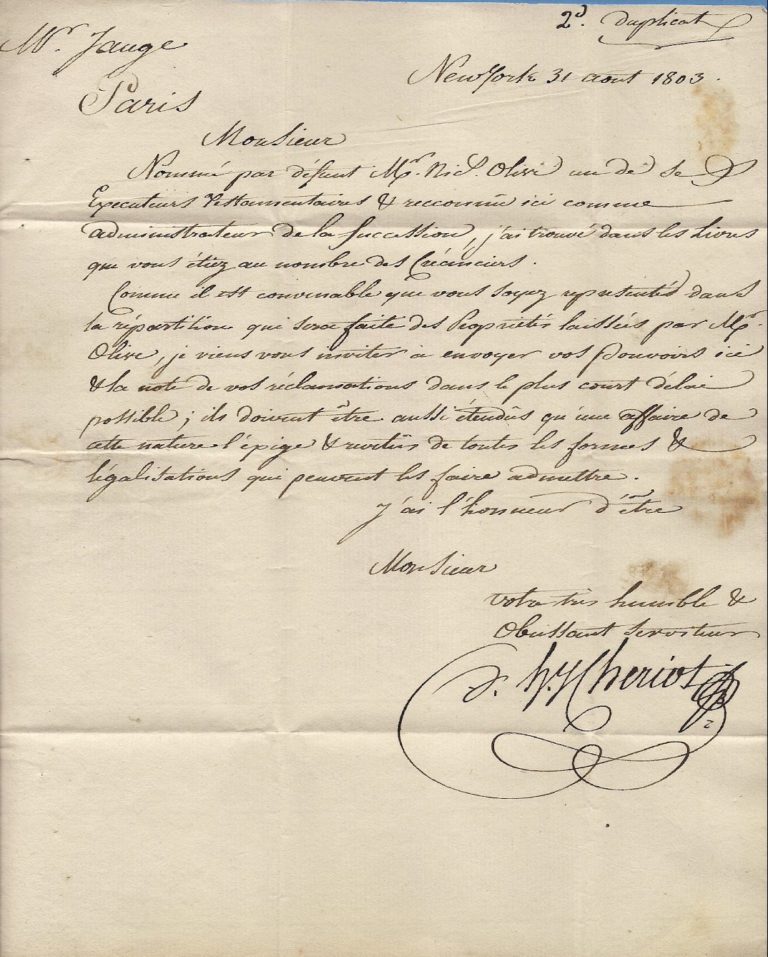 2d. Duplicat
Mr. Jauge
NewYork 31 aout 1803.
Paris
Monsieur
Nommé par défunt Mr. Nics. Olive un de ses
Executeurs Testamentaires & reconnu ici comme
administrateur de la succession, j'ai trouvé dans les Livres
que vous étiez au nombre des Créanciers.
Comme il est convenable que vous soyez représentés dans
la répartition qui sera faite des Propriétés laissées par Mr.
Olive, je viens vous inviter à envoyer vos pouvoirs ici
& la note de vos réclamations dans le plus court délai
possible; ils doivent être aussi étendûs qu'une affaire de
cette nature l'éxige & revêtus de toutes les formes &
légalisations qui peuvent les faire admettre.
J'ai l'honneur d'être
Monsieur
votre très humble &
Obéissant serviteur
Cheriot